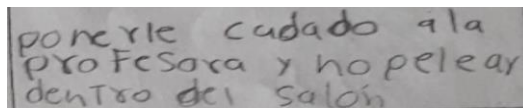 ponerle cudado ala
profesora y no pelear
dentro del salón